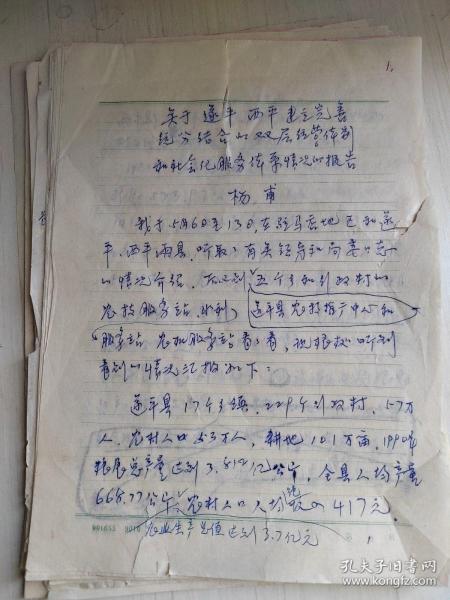 1.
关于遂平 西平建立完善
统分结合的双层经营体制
和社会化服务体系情况的报告
杨甫
我于5月6日至13日,在驻马店地区和遂
平、西平两县,听取了有关领导和同志们
的情况介绍,后又到五个乡和行政村的
农技服务站、水利、遂平县农技推广中心和
服务站 农机服务站看了看,现根据听到
看到的情况汇报如下:
遂平县17个乡镇,229个行政村,57万
人,农村人口53万人,耕地101万亩,1990年
粮食总产量达到3.812亿公斤,全县人均产量
668.77公斤,农村人口人均收入417元,
农业生产总值达到3.7亿元
孔夫子旧书网